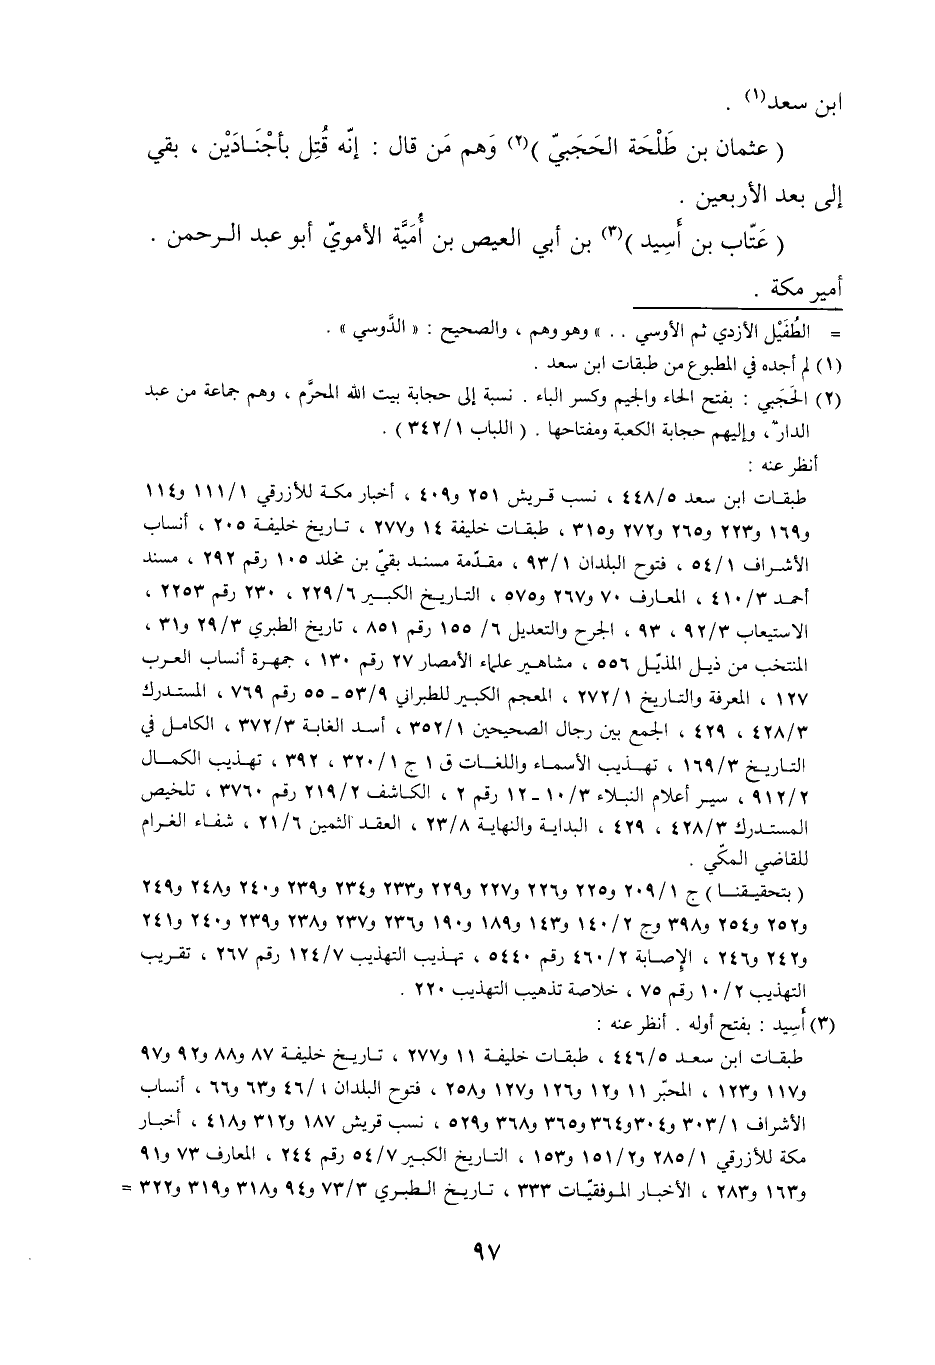 ابن سعد(١) .
( عثمان بن طَلْحَة الحَجَبيّ )(٢) وَهم مَن قال : إنّه قُتِل بأجْنَادَيْن ، بقي
إلى بعد الأربعين .
( عَتّاب بن أَسِيد )(٣) بن أبي العيص بن أُمَيَّة الأمويّ أبو عبد الرحمن .
أمير مكة .
= الطُفَيْل الأزدي ثم الأوسي . . » وهو وهم ، والصحيح : « الدَّوسي » .
(١) لم أجده في المطبوع من طبقات ابن سعد .
(٢) الحَجَبي : بفتح الحاء والجيم وكسر الباء . نسبة إلى حجابة بيت الله المحرَّم ، وهم جماعة من عبد
الدار ، وإليهم حجابة الكعبة ومفتاحها . ( اللباب ٣٤٢/١ ) .
أنظر عنه :
طبقات ابن سعد ٤٤٨/٥ ، نسب قريش ٢٥١ و٤٠٩ ، أخبار مكة للأزرقي ١١١/١ و١١٤
و١٦٩ و٢٢٣ و٢٦٥ و٢٧٢ و٣١٥ ، طبقات خليفة ١٤ و٢٧٧ ، تاريخ خليفة ٢٠٥ ، أنساب
الأشراف ٥٤/١ ، فتوح البلدان ٩٣/١ ، مقدّمة مسند بقيّ بن مخلد ١٠٥ رقم ٢٩٢ ، مسند
أحمد ٤١٠/٣ ، المعارف ٧٠ و٢٦٧ و٥٧٥ ، التاريخ الكبير ٢٢٩/٦ ، ٢٣٠ رقم ٢٢٥٣ ،
الاستيعاب ٩٢/٣ ، ٩٣ ، الجرح والتعديل ٦/ ١٥٥ رقم ٨٥١ ، تاريخ الطبري ٢٩/٣ و٣١ ،
المنتخب من ذيل المذيّل ٥٥٦ ، مشاهير علماء الأمصار ٢٧ رقم ١٣٠ ، جمهرة أنساب العرب
١٢٧ ، المعرفة والتاريخ ٢٧٢/١ ، المعجم الكبير للطبراني ٥٣/٩ ـ ٥٥ رقم ٧٦٩ ، المستدرك
٤٢٨/٣ ، ٤٢٩ ، الجمع بين رجال الصحيحين ٣٥٢/١ ، أسد الغابة ٣٧٢/٣ ، الكامل في
التاريخ ١٦٩/٣ ، تهذيب الأسماء واللغات ق ١ ج ٣٢٠/١ ، ٣٩٢ ، تهذيب الكمال
٩١٢/٢ ، سير أعلام النبلاء ١٠/٣ ـ ١٢ رقم ٢ ، الكاشف ٢١٩/٢ رقم ٣٧٦٠ ، تلخيص
المستدرك ٤٢٨/٣ ، ٤٢٩ ، البداية والنهاية ٢٣/٨ ، العقد الثمين ٢١/٦ ، شفاء الغرام
للقاضي المكّي .
( بتحقيقنا ) ج ٢٠٩/١ و٢٢٥ و٢٢٦ و٢٢٧ و٢٢٩ و٢٣٣ و٢٣٤ و٢٣٩ و٢٤٠ و٢٤٨ و٢٤٩
و٢٥٢ و٢٥٤ و٣٩٨ وج ١٤٠/٢ و١٤٣ و١٨٩ و١٩٠ و٢٣٦ و٢٣٧ و٢٣٨ و٢٣٩ و٢٤٠ و٢٤١
و٢٤٢ و٢٤٦ ، الإصابة ٤٦٠/٢ رقم ٥٤٤٠ ، تهذيب التهذيب ١٢٤/٧ رقم ٢٦٧ ، تقريب
التهذيب ١٠/٢ رقم ٧٥ ، خلاصة تذهيب التهذيب ٢٢٠ .
(٣) أَسِيد : بفتح أوله . أنظر عنه :
طبقات ابن سعد ٤٤٦/٥ ، طبقات خليفة ١١ و٢٧٧ ، تاريخ خليفة ٨٧ و٨٨ و٩٢ و٩٧
و١١٧ و١٢٣ ، المحبّر ١١ و١٢ و١٢٦ و١٢٧ و٢٥٨ ، فتوح البلدان ٤٦/١ و٦٣ و٦٦ ، أنساب
الأشراف ٣٠٣/١ و٣٠٤ و٣٦٤ و٣٦٥ و٣٦٨ و٥٢٩ ، نسب قريش ١٨٧ و٣١٢ و٤١٨ ، أخبار
مكة للأزرقي ٢٨٥/١ و١٥١/٢ و١٥٣ ، التاريخ الكبير ٥٤/٧ رقم ٢٤٤ ، المعارف ٧٣ و٩١
و١٦٣ و٢٨٣ ، الأخبار الموفقيّات ٣٣٣ ، تاريخ الطبري ٧٣/٣ و٩٤ و٣١٨ و٣١٩ و٣٢٢ =
٩٧